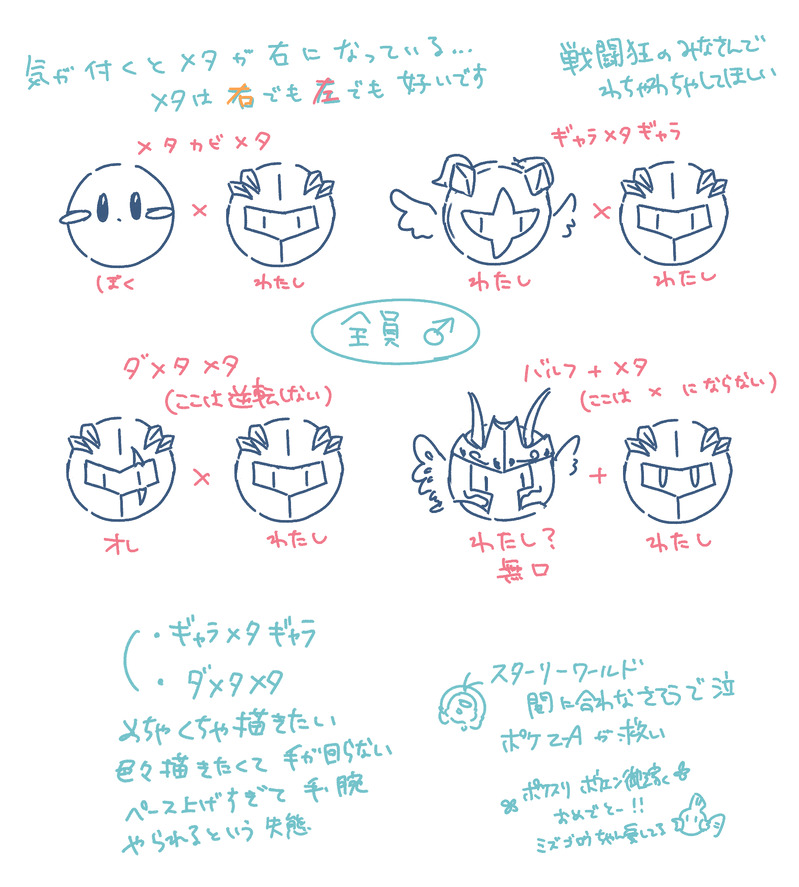 気が付くとメタが右になっている…
メタは右でも左でも好いです
戦闘狂のみなさんで
わちゃわちゃしてほしい
メタカビメタ
×
ぼく
わたし
ギャラメタギャラ
×
わたし
わたし
全員♂
ダメタメタ
(ここは逆転しない)
×
オレ
わたし
バルフ+メタ
(ここは×にならない)
+
わたし?
無口
わたし
・ギャラメタギャラ
・ダメタメタ
めちゃくちゃ描きたい
色々描きたくて手が回らない
ペース上げすぎて手、腕
やられるという失態
スターリーワールド
間に合わなさそうで泣
ポケZAが救い
ポケスリ ポケモン御三家
おめでとー!!
ミズゴロウちゃん愛してる